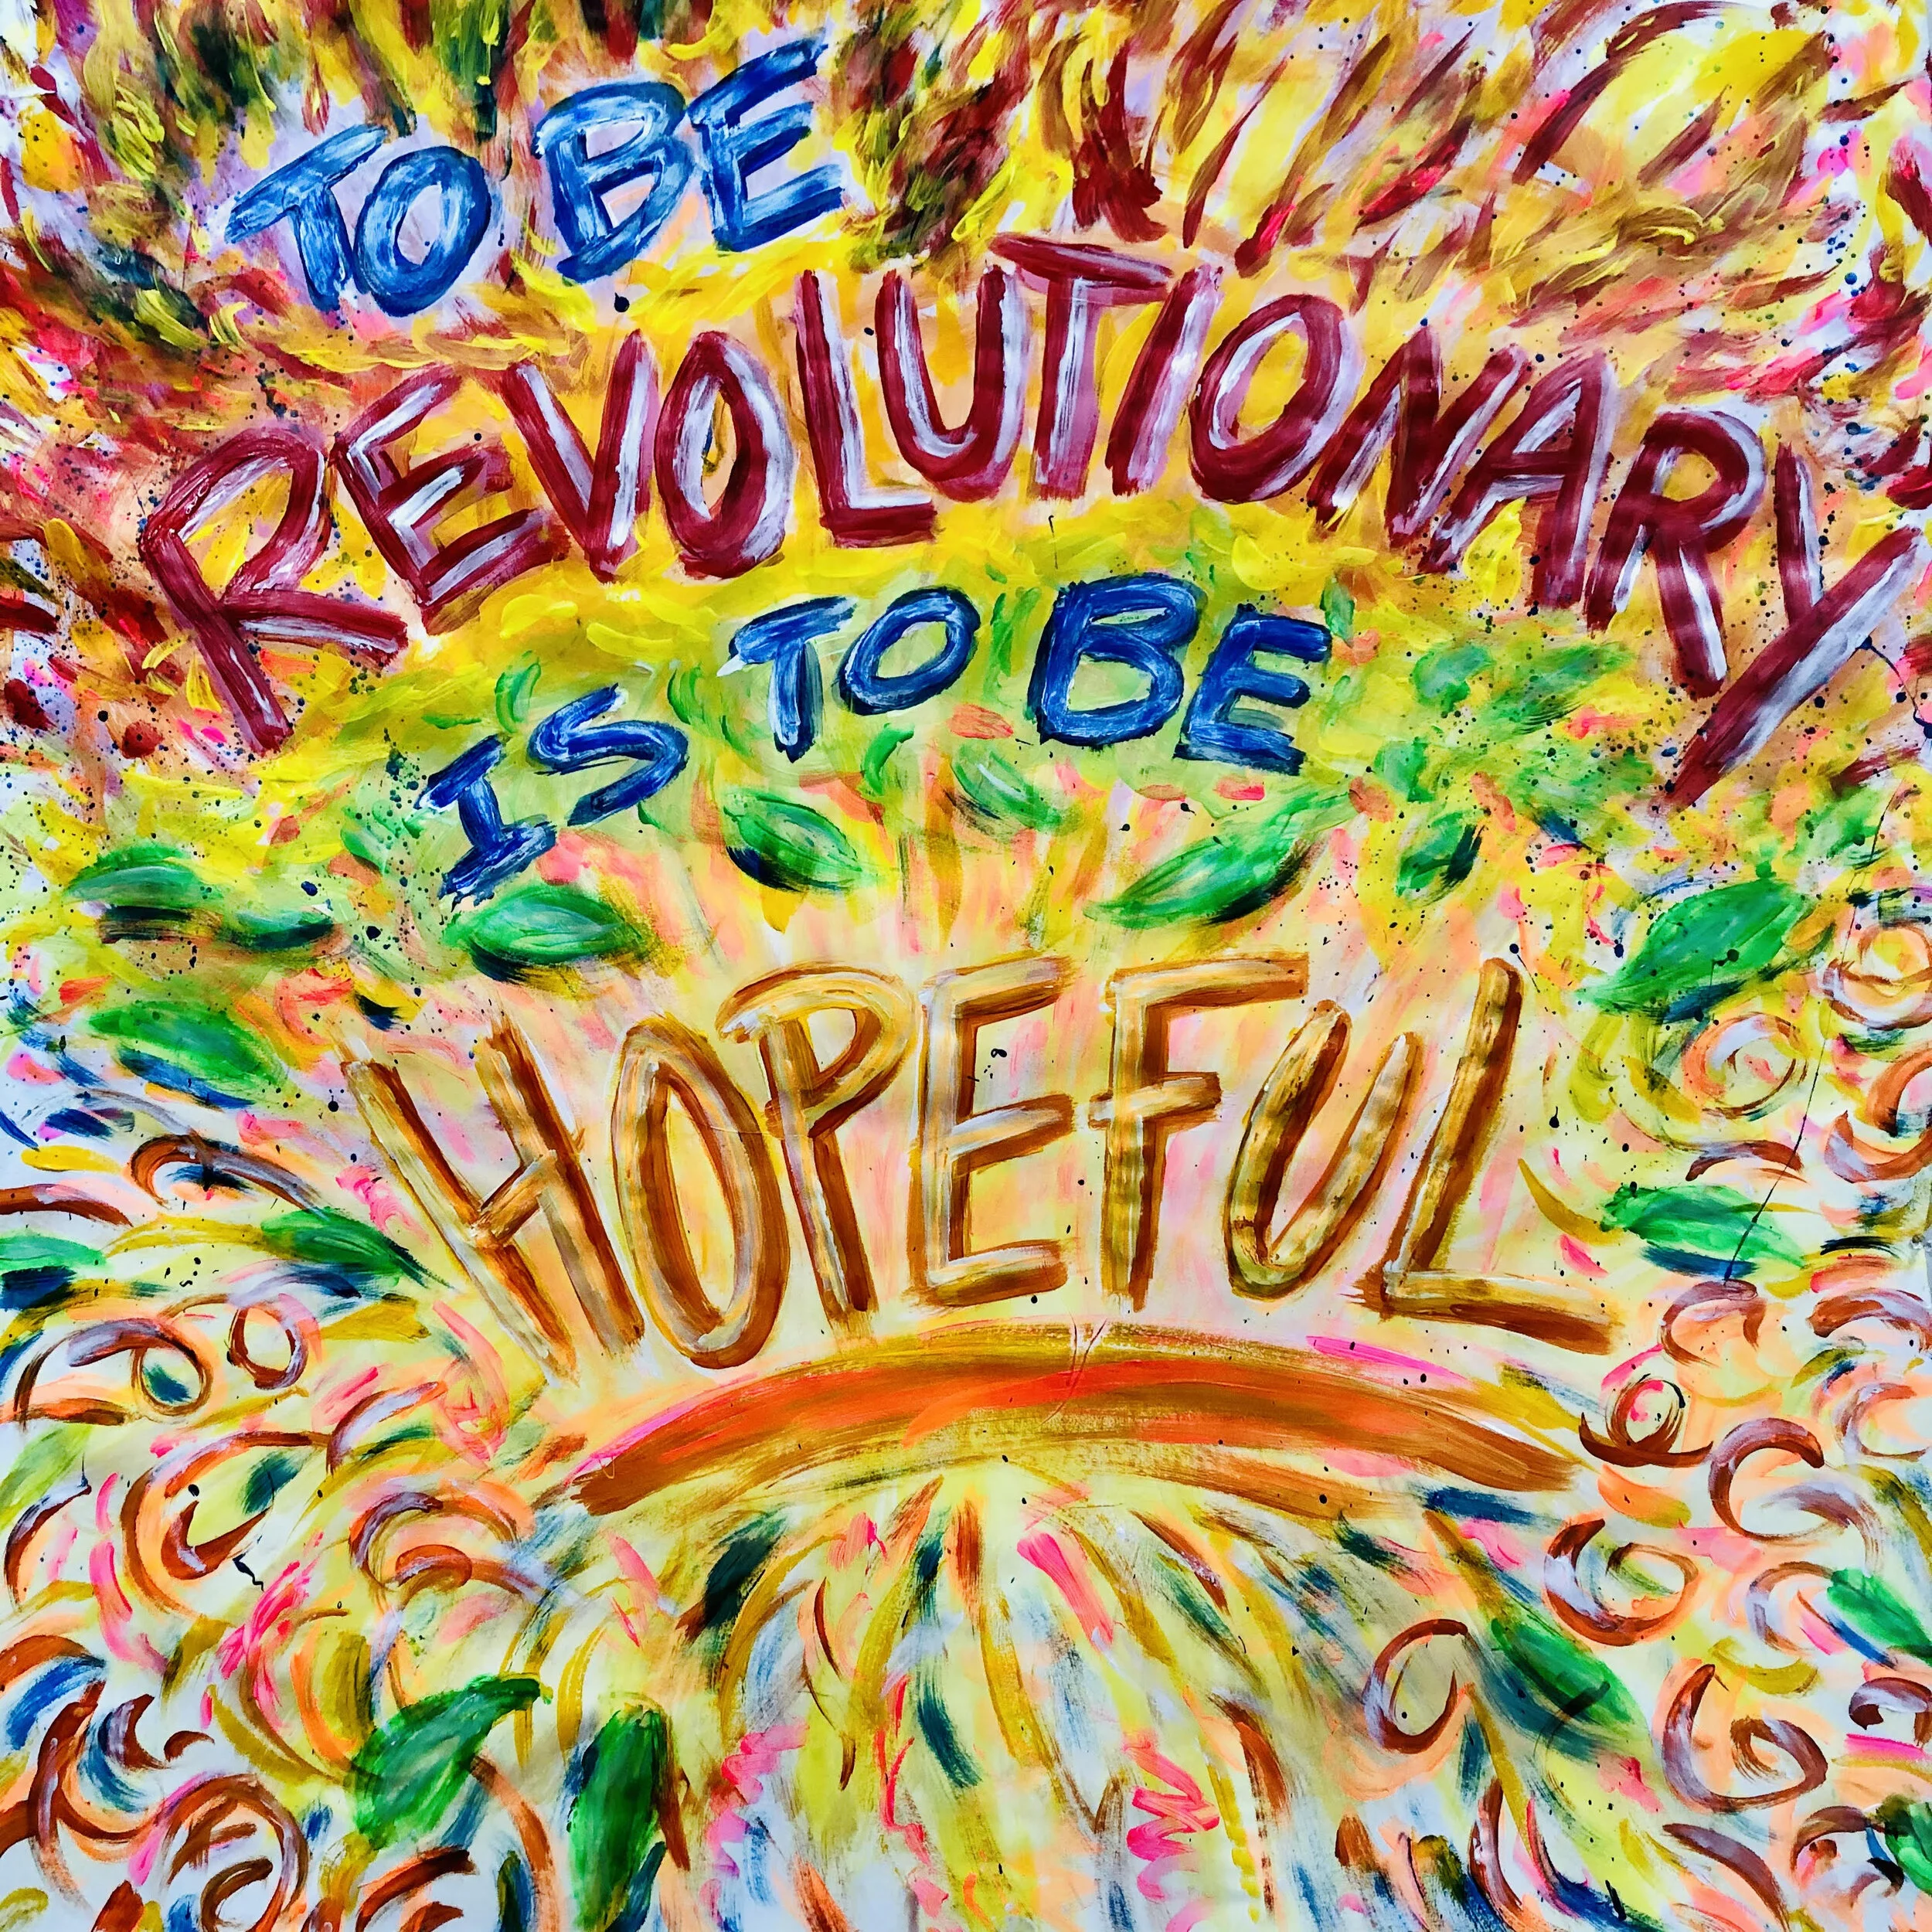 TO BE
REVOLUTIONARY
IS TO BE
HOPEFUL